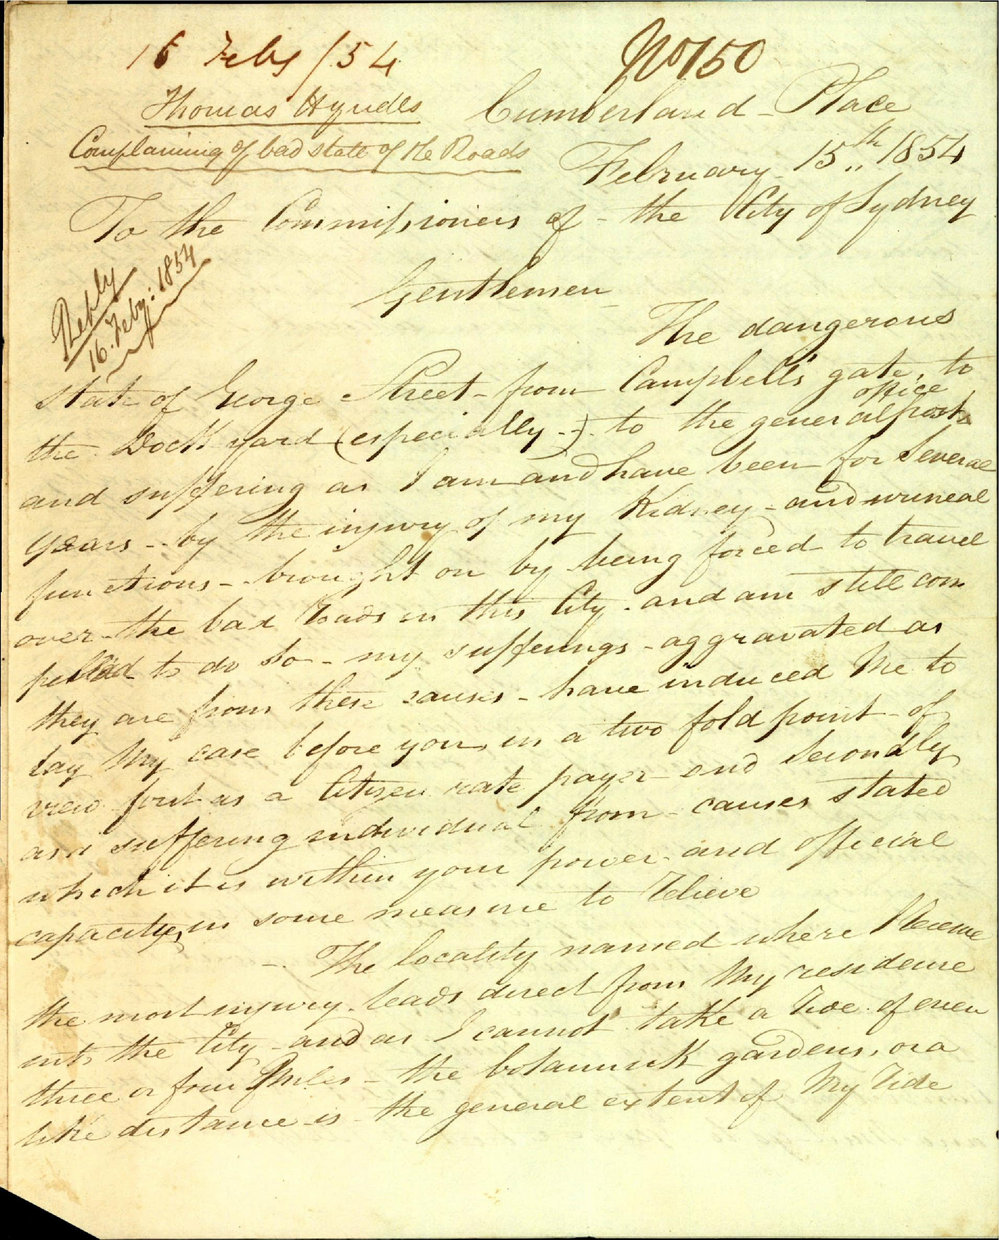 16 Feby /54
No 150
Thomas Hyndes
Complaining of bad state of the Roads
Cumberland Place
February 15th 1854
To the Commissioners of - the City of Sydney
Reply
16. Feby: 1854
Gentlemen
The dangerous
state of George Street - from Campbell's gate, to
the Dock yard (especially -) to the general post office
and suffering as I am and have been for several
years - by the injury of my Kidney - and urineal
functions - brought on by being forced to travel
over - the bad Roads in this City - and am still com
pelled to do so - my sufferings - aggravated as
they are from these causes - have induced me to
lay my case before you, in a two fold point - of
view first as a Citizen rate payer and secondly
as a suffering individual from - causes stated
which it is within your power - and official
capacity, in some measure to relieve
- The locality named where I Receive
the most injury. leads direct from my residence
into the City - and as I cannot take a Ride of even
three or four Miles - the botannick gardens, or a
like distance is - the general extent of my ride